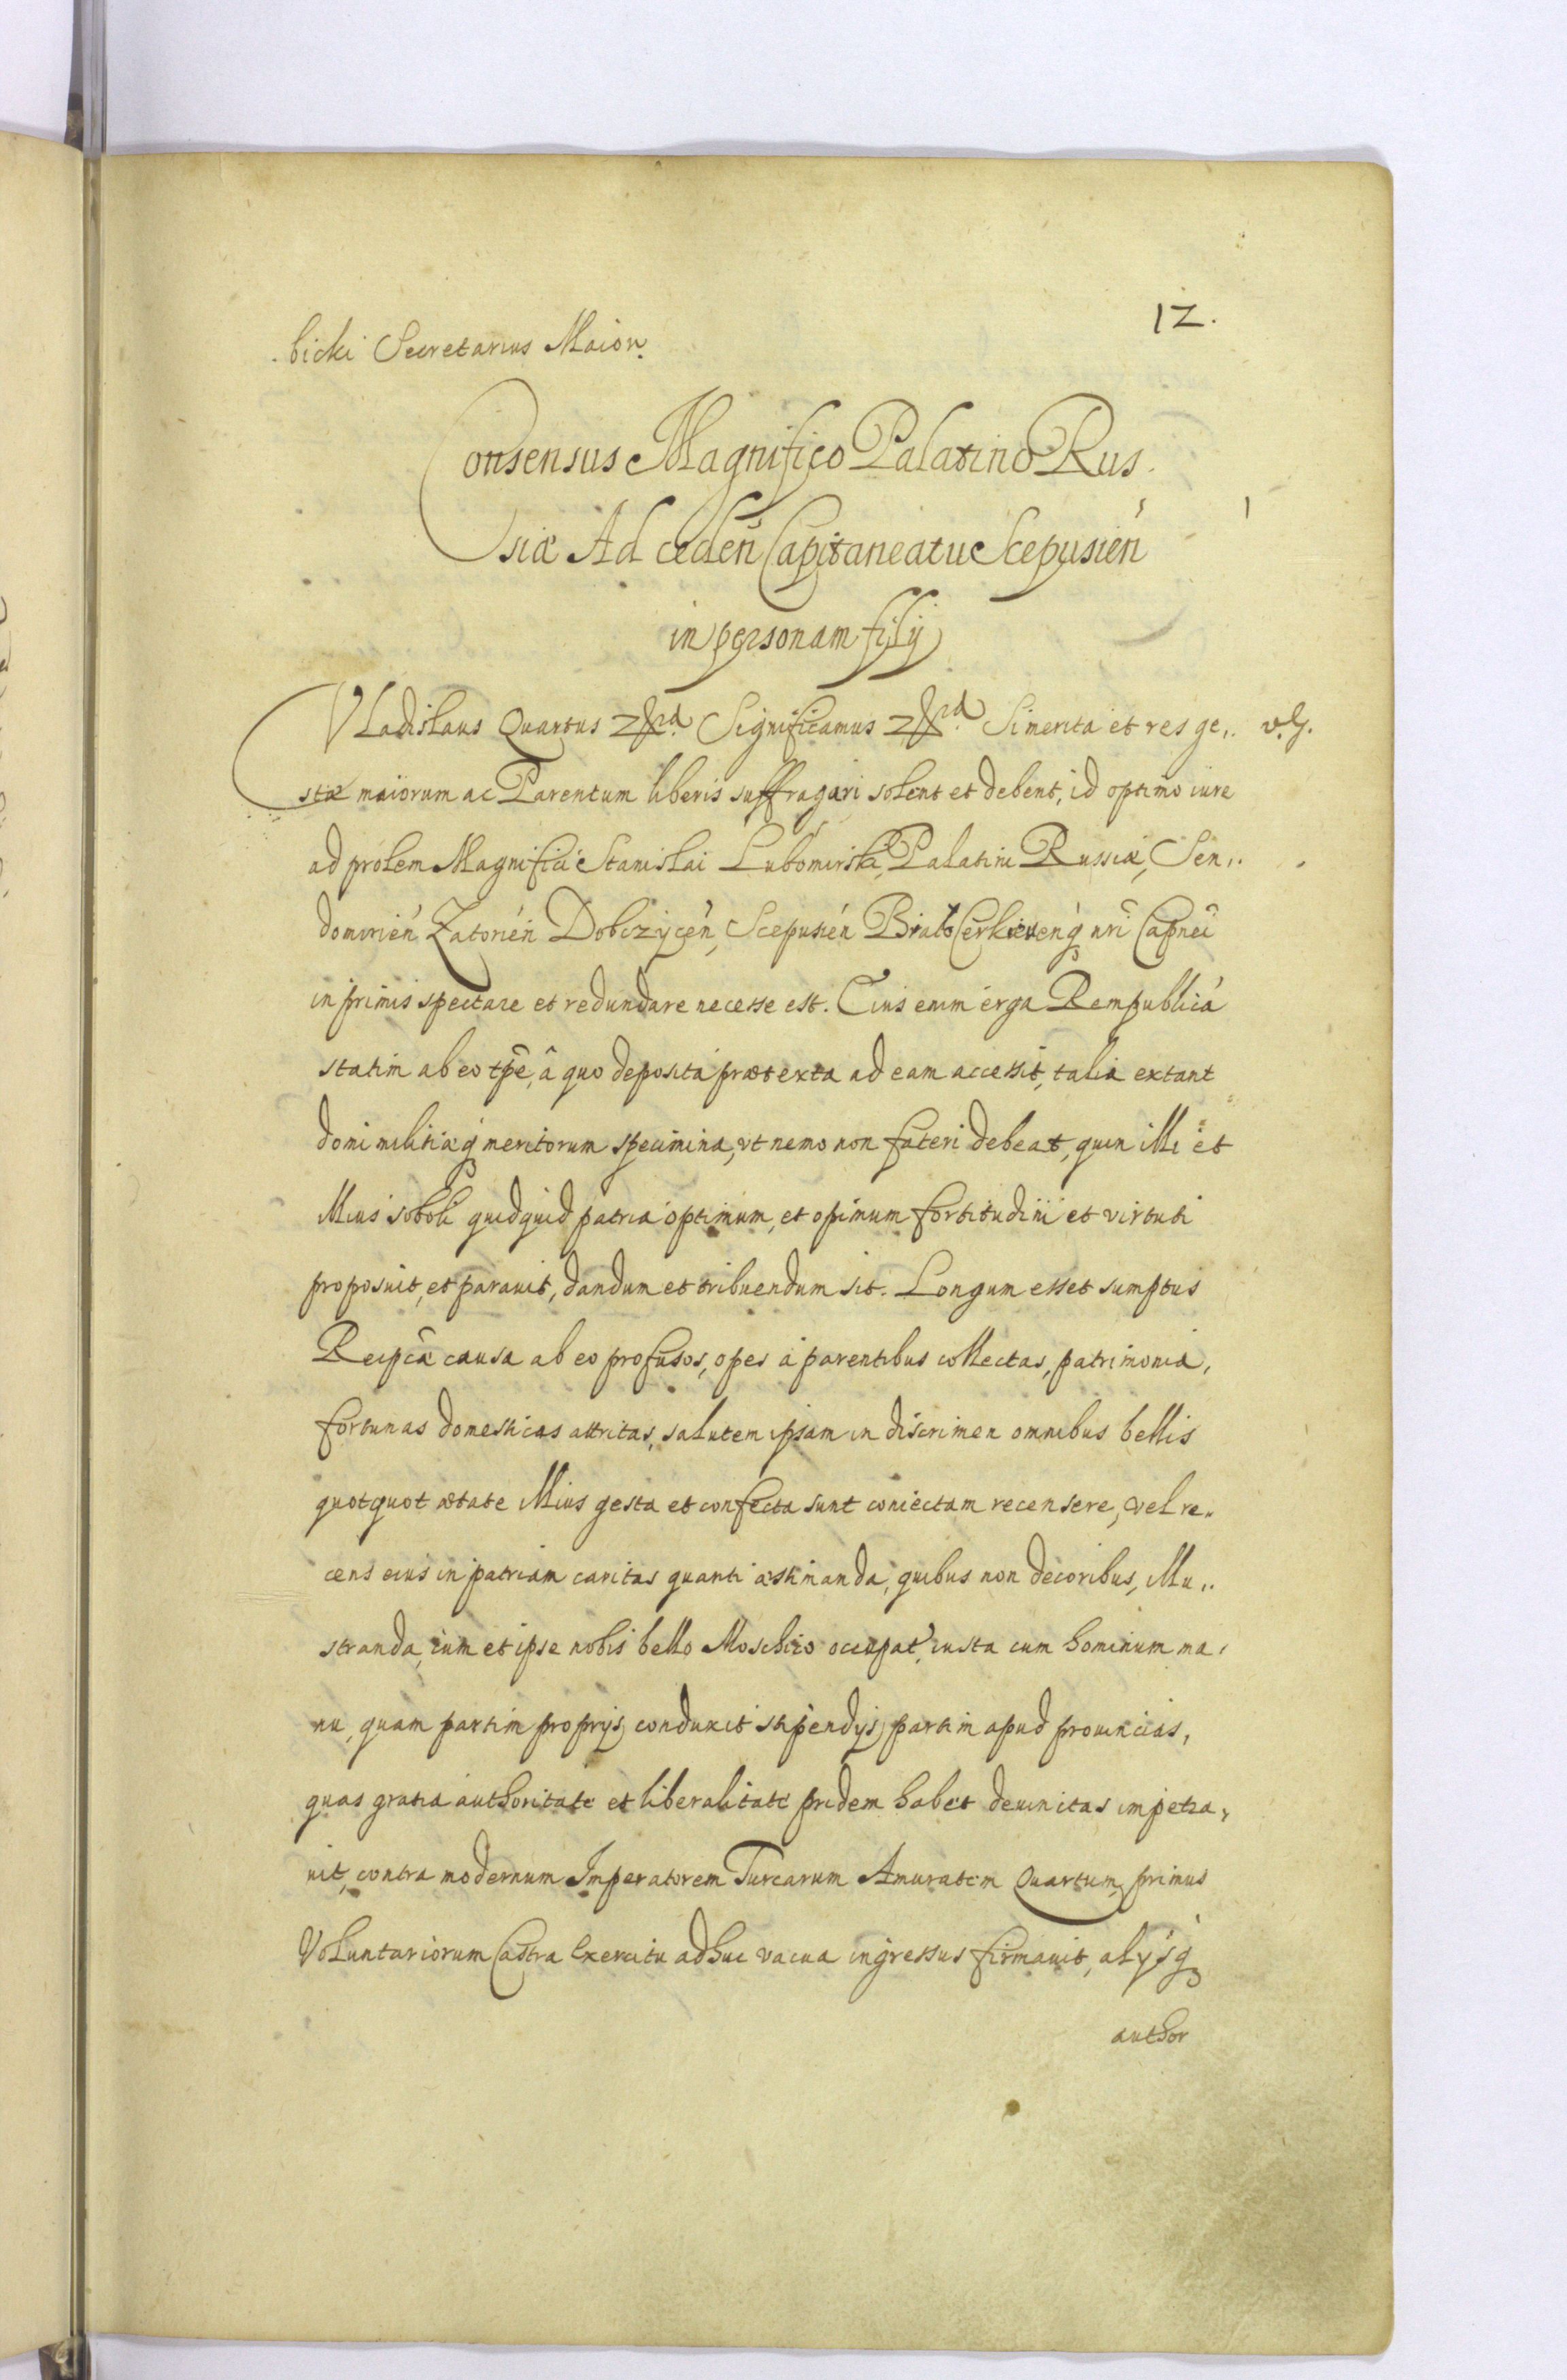 12.
bicki Secretarius Maior.
Consensus Magnifico Palatino Rus
siæ Ad ceden̄ Capitaneatu Scepusień
in personam filij
Vladislaus Quartus Significamus Si merita et res ge,. v. G.
stæ maiorum ac Parentum liberis suffragari solent et debent, id optimo iure
ad prolem Magnifici Stanislai Lubomirski, Palatini Russiæ, Sen,.
domirień Zatorień Dobczycen̄, Scepusień Białocerkievenq́ nr̄i Capnei
in primis spectare et redundare necesse est. Eius enim erga Rempublicá
statim ab eo tp̄e, â quo deposita prætexta ad eam accessit, talia extant
domi militiæq́ meritorum specimina, vt nemo non fateri debeat, quin illi et
illius soboli quidquid patria optimum, et opimum fortitudini et virtuti
proposuit, et parauit, dandum et tribuendum sit. Longum esset sumptus
Reipcæ causa ab eo profusos, opes á parentibus collectas, patrimonia,
fortunas domesticas attritas, salutem ipsam in discrimen omnibus bellis
quotquot ætate illius gesta et confecta sunt coniectam recensere, vel re,.
cens eius in patriam caritas quanti æstimanda, quibus non decoribus, illu,.
stranda, cum et ipse nobis bello Moschico occupat', iusta cum hominum ma,
nu, quam partim proprijs conduxit stipendijs, partim apud prouincias,
quas gratia authoritate et liberalitate pridem habet deuinctas impetra,
uit, contra modernum Imperatorem Turcarum Amuratem Quartum, primus
Voluntariorum Castra Exercitu adhuc vacua ingressus firmauit, alijsq́
author